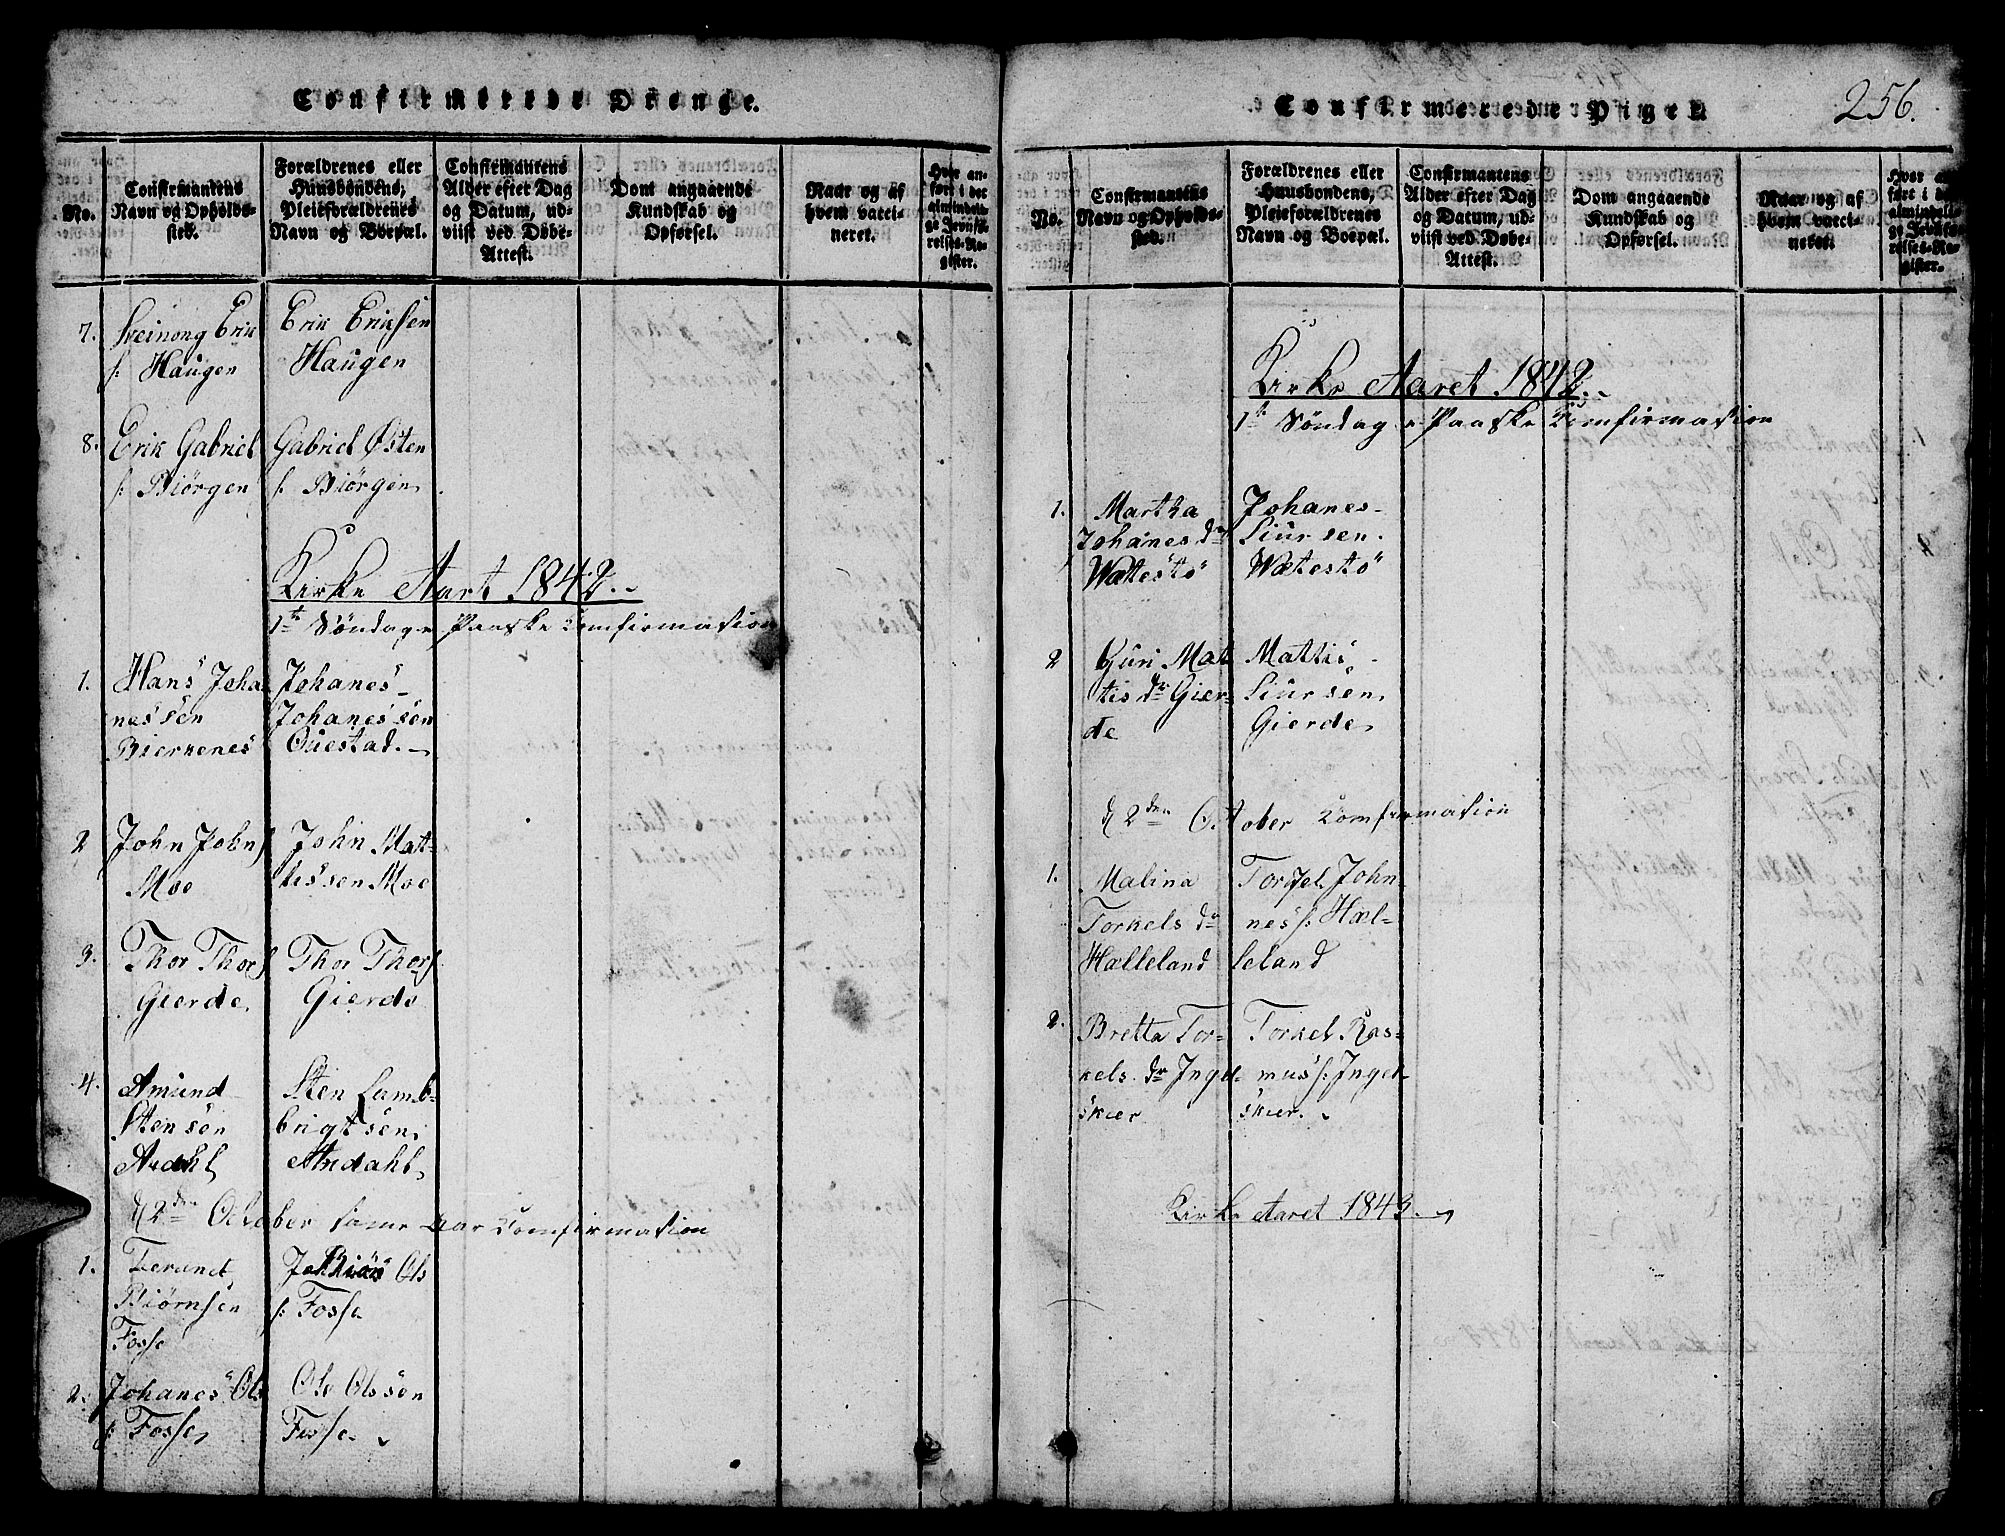 Confirmerede Drenge.
No.
Confirmantens
Navn og Opholds-
sted.
Forældrenes eller
Huusbondens,
Pleieforældrenes
Navn og Boepæl.
Confirmantens
Alder efter Dag
og Datum, ud-
viist ved Døbe-
Attest.
Dom angaaende
Kundskab og
Opførsel.
Naar og af
hvem vacci-
neret.
Hvor an-
ført i det
almindeli-
ge Jevnfø-
relses-Re-
gister.
7. Sveinong Erik
s: Haugen
Erik Eriksen
Haugen
8. Erik Gabriel
s: Biörgen
Gabriel Østen
s: Biörgen
Kirke Aart 1842.
1te Söndag e Paaske Comfirmation
1. Hans Joha
nessen
Bierkenes
Johanes
Johanessen
Questad.
2 John Johns
Moe
John Mat-
tissen Moe
3. Thor Thors
Gierde,
Thor Thors
Gierde
4. Amund
Stensen
Ardahl
Sten Lamb-
brigtsen,
Ardahl,
d 2den October samme Aar Comfirmation
1. Terund
Biörnsen
Fosse
Ols
s: Fosse
2. Johanes Ols
s: Fosse,
Ole Olssen
Fosse.
Confirmerede Piger.
256.
No.
Confirmantens
Navn og Opholds-
sted.
Forældrenes eller
Huusbondens,
Pleieforældrenes
Navn og Boepæl.
Confirmantens
Alder efter Dag
og Datum, ud-
viist ved Døbe-
Attest.
Dom angaaende
Kundskab og
Opførsel.
Naar og af
hvem vacci-
neret.
Hvor an-
ført i det
almindeli-
ge Jevnfø-
relses-Re-
gister.
Kirke Aaret 1842.
1te Söndag e Paaske Comfirmation
1. Martha
Johanes dr
Wattestö
Johanes
Siursen.
Wætestö
2 Guri Mat
tis dr Gier-
de
Mattis
Siursen,
Gierde,
d 2den October Comfirmation
1. Malina
Torkels dr
Hælleland
Torkel John
nes s: Hæl-
leland
2. Bretta Tor-
kels dr Ingel-
skier
Torkel Ras-
mus s: Ingel-
skier.
Kirke Aaret 1843.